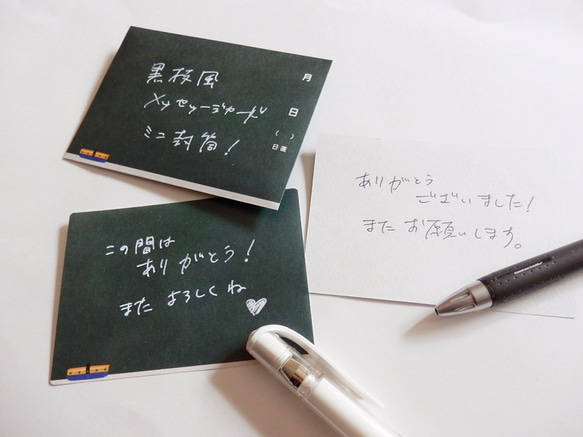 黒板風
メッセージカード
ミニ封筒!
月
日
( )
日直
ありがとう
ございました!
また お願いします。
この間は
ありがとう!
また よろしくね♡